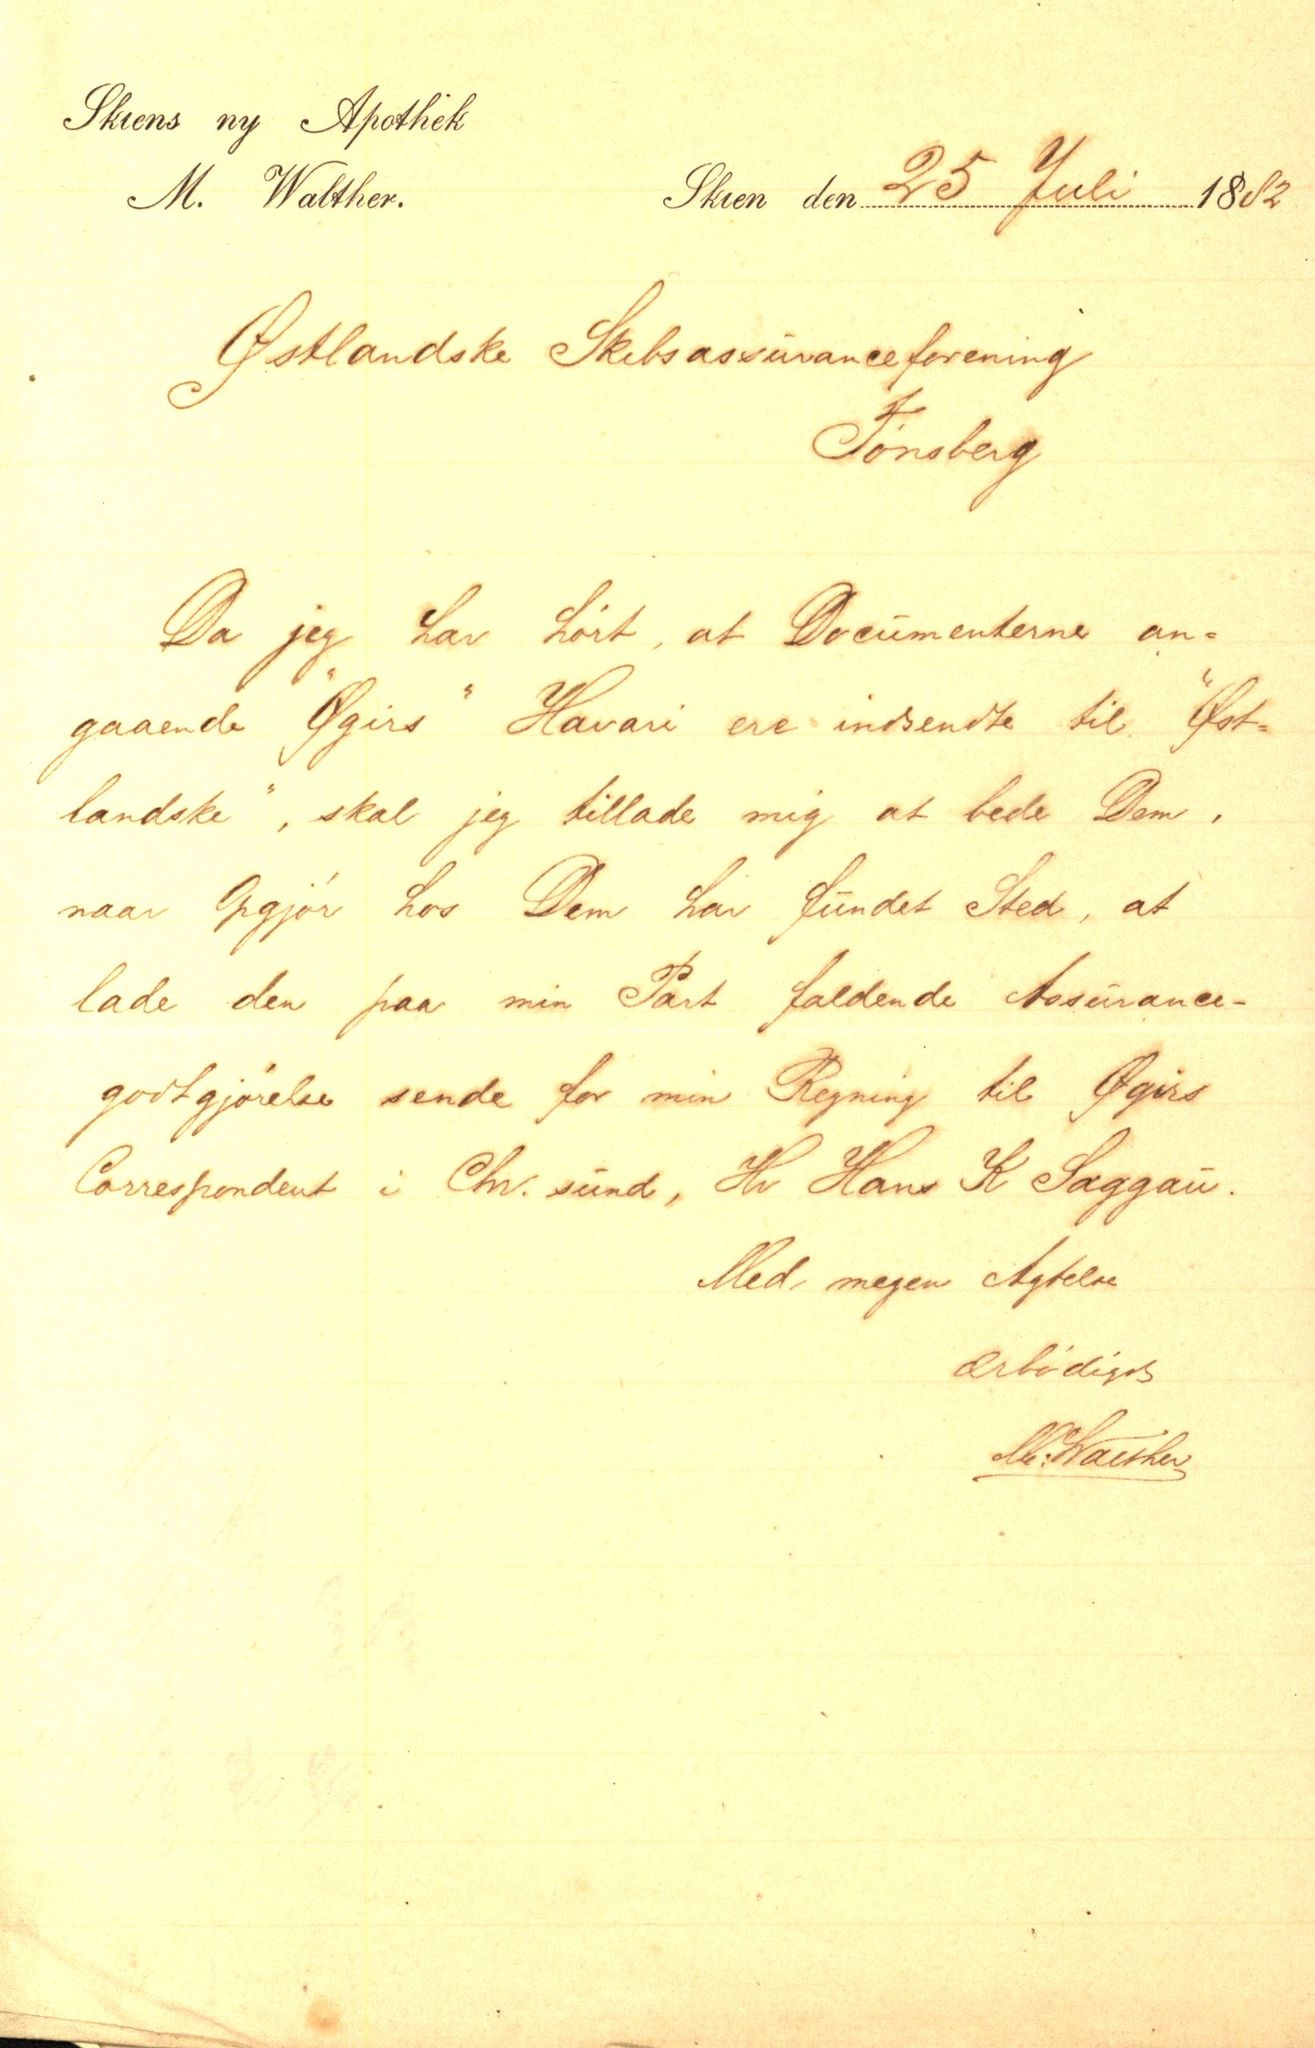 Skiens ny Apothek
M. Walther.
Skien den 25 Juli 1882
Østlandske Skibsassuranceforening
Tønsberg
Da jeg har hørt, at Documenterne an-
gaaende "Øgirs" Havari ere indsendte til "Øst-
landske", skal jeg tillade mig at bede Dem,
naar Opgjør hos Dem har fundet Sted, at
lade den paa min Part faldende Assurance-
godtgjørelse sende for min Regning til Øgirs
Correspondent i Chr. sund, Hr Hans K Saggau.
Med megen Agtelse
ærbødigst
M. Walther